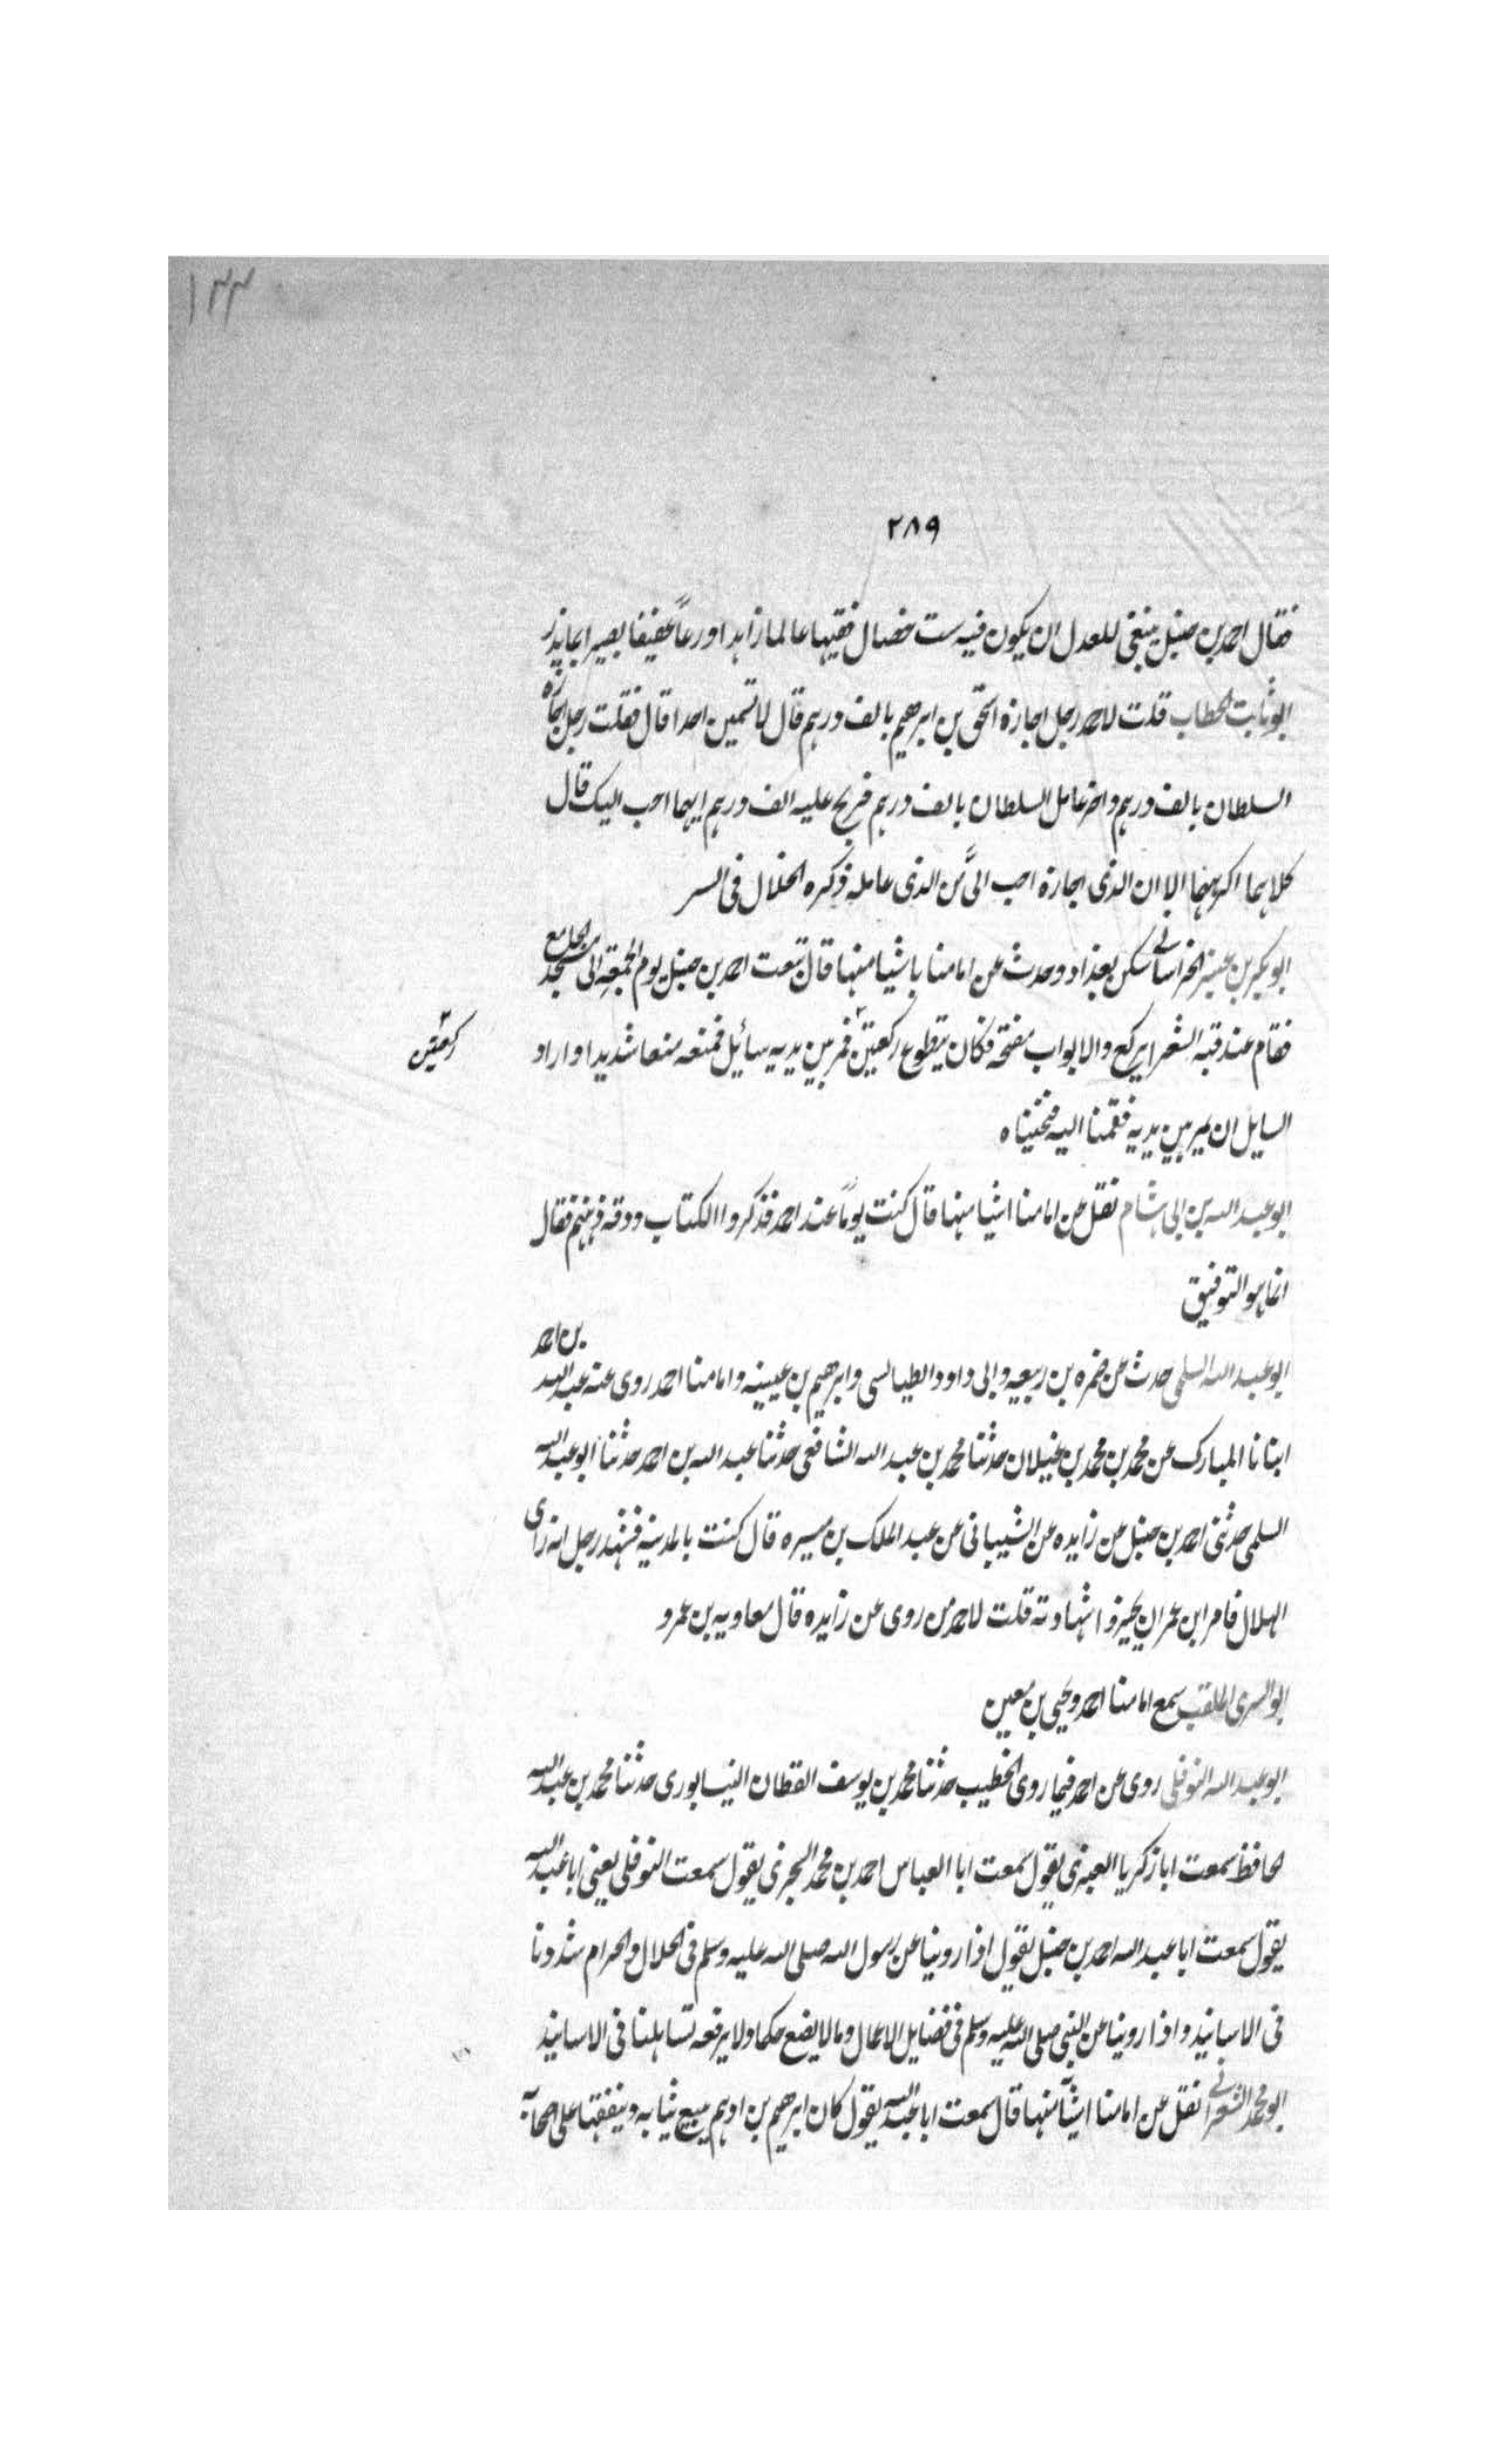 ١٣٣
٢٨٩
فقال احمد بن حنبل ينبغى للعدل ان يكون فيه ست خصال فقيها عالما زاهدا ورعاً عفيفا بصيرا بما يذر
ابو ثابت الحطاب قلت لاحمد رجل اجازه اسحق بن ابرهيم بالف درهم قال لا تسمين احدا قال فقلت رجل اجازه
السلطان بالف درهم واخر عامل السلطان بالف درهم فربح عليه الف درهم ايهما احب اليك قال
كلاهما اكرههما الا ان الذى اجازه احب الىَّ من الذى عامله ذكره الخلال فى السر
ابو بكر بن عنبر الخراسانى سكن بغداد وحدث عن امامنا باشيا منها قال تبعت احمد بن حنبل يوم الجمعة الى مسجد الجامع
فقام عند قبه الشعرا يركع والابواب مفتحة فكان يتطوع ركعتين فمر بين يديه سائيل فمنعه منعا شديدا واراد
ركعتين
السايل ان يمر بين يديه فقمنا اليه فنحيناه
ابو عبد الله بن ابى هشام نقل عن امامنا اشيا منها قال كنت يوماً عند احمد فذكروا الكتاب ودقه ذهنهم فقال
انما هو التوفيق
بن احمد
ابو عبد الله السلمى حدث عن ضمره بن ربيعه وابى داود الطيالسى وابرهيم بن عيينه وامامنا احمد روى عنه عبد الله
انبانا المبارك عن محمد بن محمد بن غيلان حدثنا محمد بن عبد الله الشافعى حدثنا عبد الله بن احمد حدثنا ابو عبد الله
السلمى حدثنى احمد بن حنبل عن زايده عن الشيبانى عن عبد الملك بن ميسره قال كنت بالمدينه فشهد رجل انه راى
الهلال فامر ابن عمر ان يجيزوا شهادته قلت لاحمد من روى عن زايده قال معاويه بن عمرو
ابو السرى الملقب سمع امامنا احمد ويحيى بن معين
ابو عبد الله النوفلى روى عن احمد فيما روى الخطيب حدثنا محمد بن يوسف القطان النيسابورى حدثنا محمد بن عبد الله
الحافظ سمعت ابا زكريا العنبرى يقول سمعت ابا العباس احمد بن محمد السجزى يقول سمعت النوفلى يعنى ابا عبد الله
يقول سمعت ابا عبد الله احمد بن حنبل يقول اذا روينا عن رسول الله صلى الله عليه وسلم فى الحلال والحرام شددنا
فى الاسانيد واذا روينا عن النبى صلى الله عليه وسلم فى فضايل الاعمال وما لا يضع حكما ولا يرفعه تساهلنا فى الاسانيد
ابو محمد الشعرانى نقل عن امامنا اشيآ منها قال سمعت ابا عبد الله يقول كان ابرهيم بن ادهم يبيع ثيابه وينفقها على اصحابه